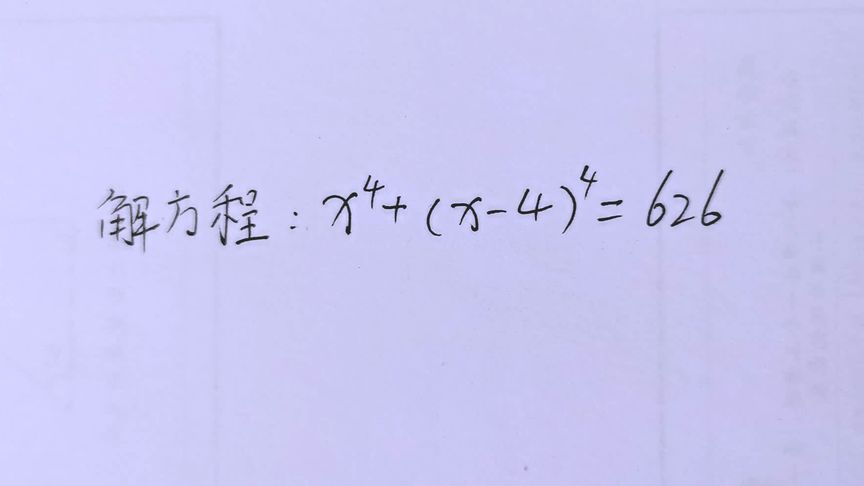 解方程：x⁴+(x-4)⁴=626